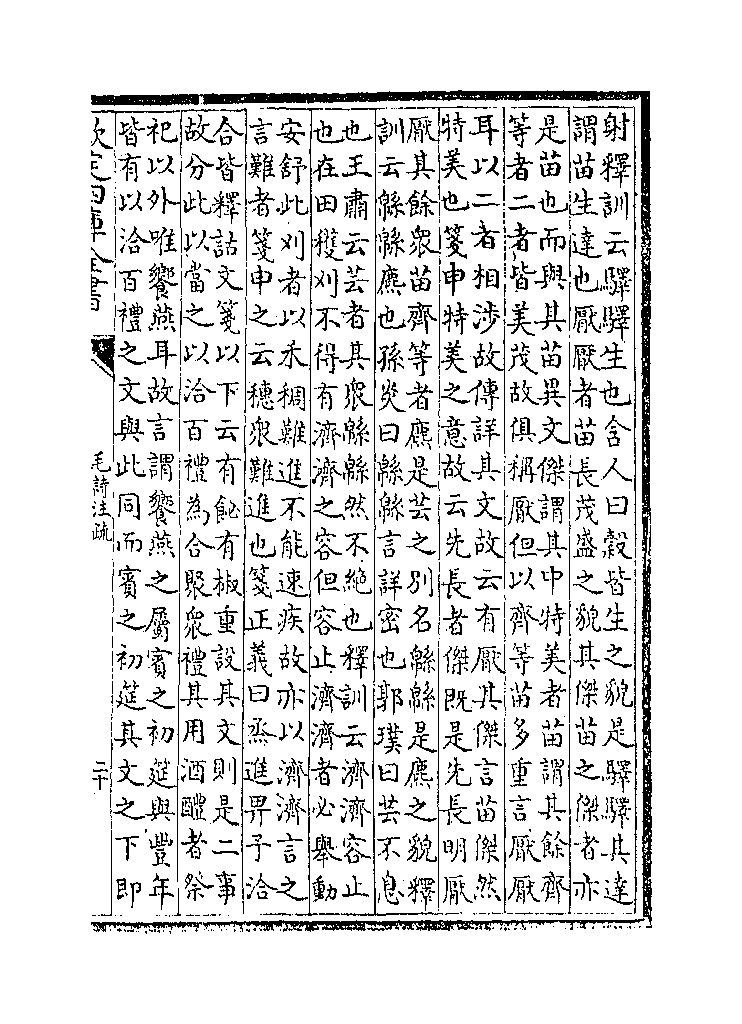 射釋訓云驛驛生也舍人曰穀皆生之貌是驛驛其達
謂苗生達也厭厭者苗長茂盛之貌其傑苗之傑者亦
是苗也而與其苗異文傑謂其中特美者苗謂其餘齊
等者二者皆美茂故俱稱厭但以齊等苗多重言厭厭
耳以二者相涉故傳詳其文故云有厭其傑言苗傑然
特美也箋申特美之意故云先長者傑既是先長明厭
厭其餘衆苗齊等者麃是芸之別名緜緜是麃之貌釋
訓云緜緜麃也孫炎曰緜緜言詳密也郭璞曰芸不息
也王肅云芸者其衆緜緜然不絶也釋訓云濟濟容止
也在田穫刈不得有濟濟之容但容止濟濟者必舉動
安舒此刈者以禾稠難進不能速疾故亦以濟濟言之
言難者箋申之云穗衆難進也箋正義曰烝進畀予洽
合皆釋詁文箋以下云有飶有椒重設其文則是二事
故分此以當之以洽百禮為合聚衆禮其用酒醴者祭
祀以外唯饗燕耳故言謂饗燕之屬賓之初筵與豐年
皆有以洽百禮之文與此同而賓之初筵其文之下即
欽定四庫全書
毛詩注疏
二十